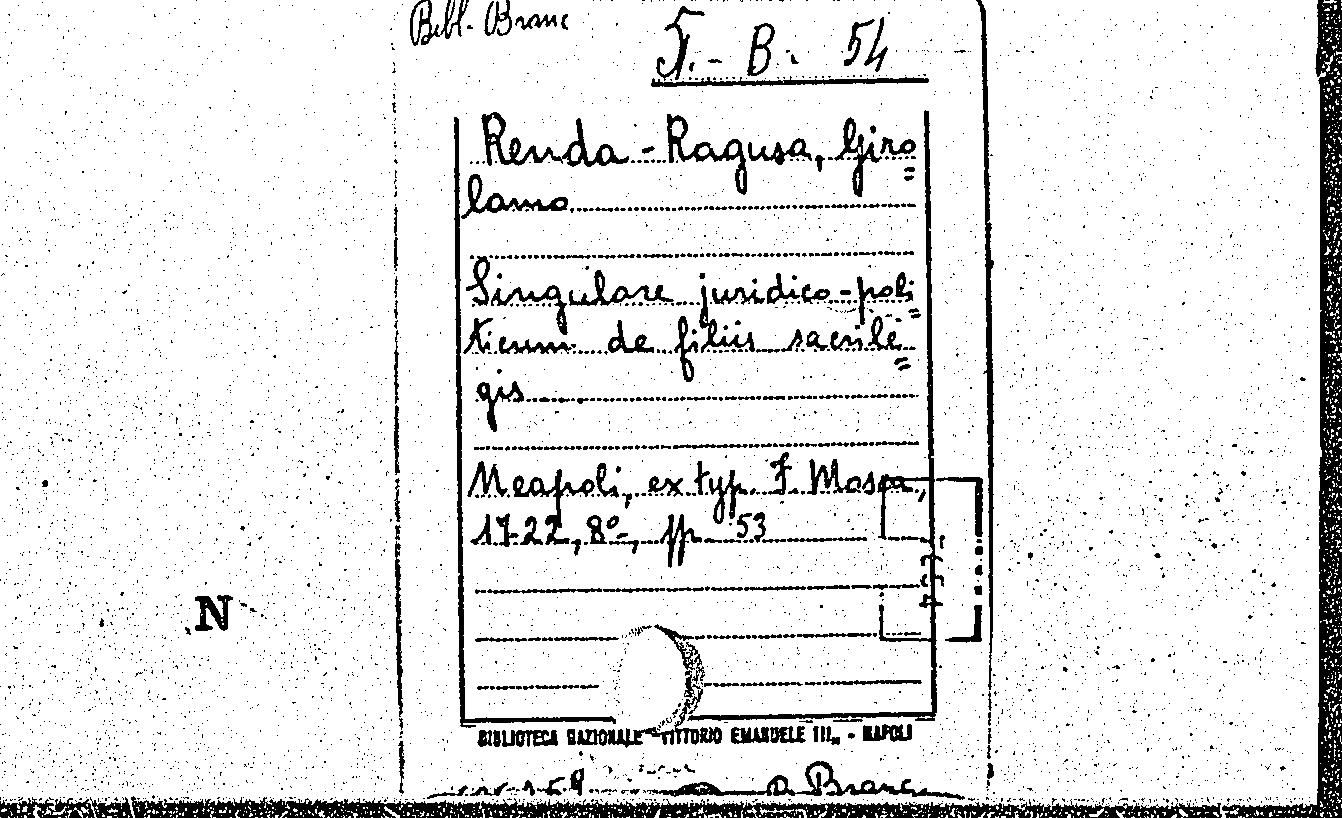 Bibl. Branc
5.- B. 54
Renda-Ragusa, Giro=
lamo
Singulare juridico-poli=
ticum de filiis sacrile=
gis
Neapoli, ex typ. F. Mosca,
1722, 8º, pp. 53
N
BIBLIOTECA NAZIONALE "VITTORIO EMANUELE III„ - NAPOLI
Branc